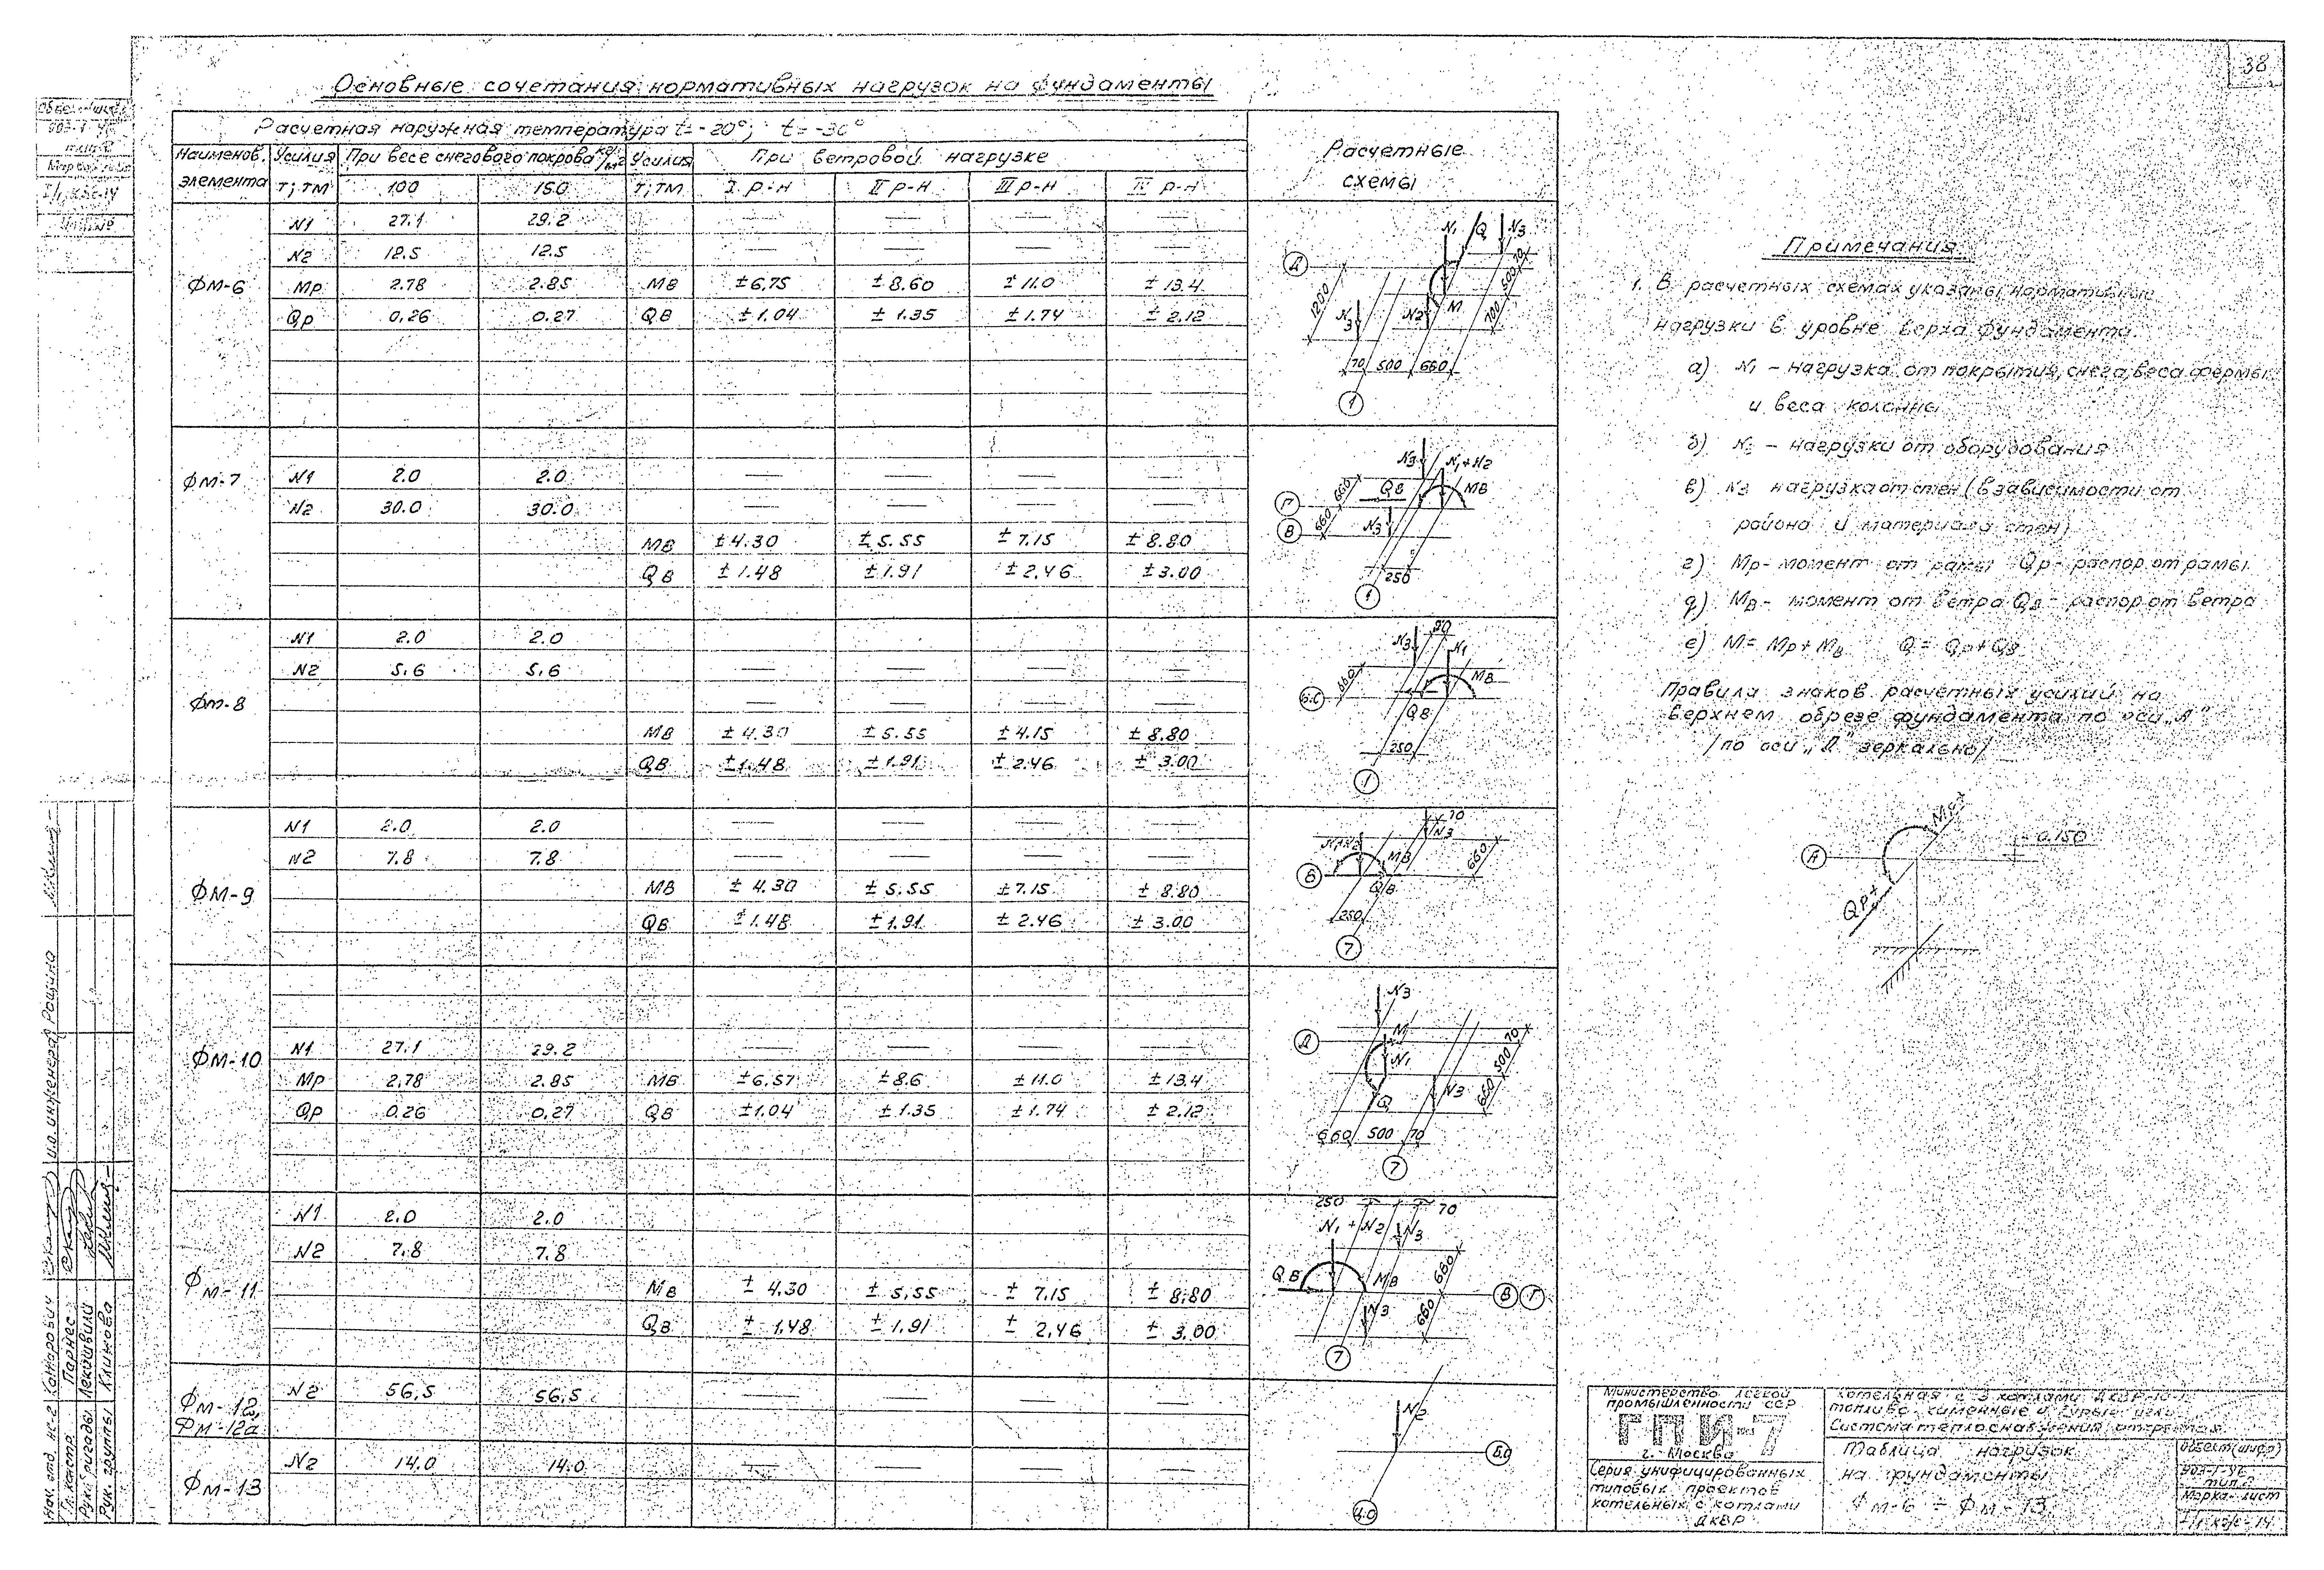 38
Основные сочетания нормативных нагрузок на фундаменты
Расчетная наружная температура t=-20°; t=-30°
Наименов. элемента Усилия т; тм При весе снегового покрова кг/м² Усилия т; тм При ветровой нагрузке Расчетные схемы
100 150 I р-н II р-н III р-н IV р-н
ФМ-6
N1 27.1 29.2 — — — —
N2 12.5 12.5 — — — —
Мр 2.78 2.85 МВ ±6.75 ±8.60 ±11.0 ±13.4
Qр 0.26 0.27 QВ ±1.04 ±1.35 ±1.74 ±2.12
ФМ-7
N1 2.0 2.0 — — — —
N2 30.0 30.0 — — — —
МВ ±4.30 ±5.55 ±7.15 ±8.80
QВ ±1.48 ±1.91 ±2.46 ±3.00
ФМ-8
N1 2.0 2.0
N2 5.6 5.6 — — — —
— — — —
МВ ±4.30 ±5.55 ±4.15 ±8.80
QВ ±1.48 ±1.91 ±2.46 ±3.00
ФМ-9
N1 2.0 2.0 — — — —
N2 7.8 7.8 — — — —
МВ ±4.30 ±5.55 ±7.15 ±8.80
QВ ±1.48 ±1.91 ±2.46 ±3.00
ФМ-10
N1 27.1 29.2 — — — —
Мр 2.78 2.85 МВ ±6.57 ±8.6 ±11.0 ±13.4
Qр 0.26 0.27 QВ ±1.04 ±1.35 ±1.74 ±2.12
ФМ-11
N1 2.0 2.0
N2 7.8 7.8
МВ ±4.30 ±5.55 ±7.15 ±8.80
QВ ±1.48 ±1.91 ±2.46 ±3.00
ФМ-12,
ФМ-12а
N2 56.5 56.5 — — — —
ФМ-13
N2 14.0 14.0 — — — —
N1 Q N3
Д 1200 N3 N2 М 70 500 700
70 500 660
1
N3 N1+N2
660 QВ МВ
Г
В 660 N3
250
1
N3 90 N1
660 МВ
Б.С
QВ
250
1
70
N1+N2 МВ N3 660
Б
QВ
250
7
N3
Д М N1 70 500 660
Q N3
660 500 70
7
250 70
N1+N2 N3
QВ МВ 660 В Г
N3 660
7
N2
Б.О
Примечания
1. В расчетных схемах указаны нормативные
нагрузки в уровне верха фундамента.
а) N1 – нагрузка от покрытия, снега, веса фермы
и веса колонны
б) N2 – нагрузки от оборудования
в) N3 нагрузка от стен (в зависимости от
района и материала стен)
г) Мр- момент от рамы Qр- распор от рамы
д) МВ- момент от ветра QВ- распор от ветра
е) М= Мр+МВ Q= Qр+QВ
Правила знаков расчетных усилий на
верхнем обрезе фундамента по оси „А"
/по оси „Д" зеркально/
А
-0.150
Министерство легкой
промышленности СССР
ГПИ-7
г. Москва
Серия унифицированных
типовых проектов
котельных с котлами
ДКВР
Котельная с 3 котлами ДКВР-10
Система теплоснабжения открытая
Таблица нагрузок
на фундаменты
ФМ-6 ÷ ФМ-13
Объект (шифр)
903-1-46
тип 2
Марка-лист
Нач. отд. нс-2 Комарович
Гл. констр. Парнес
Рук. бригады Лекишвили
Рук. группы Климова
и.о. инженера Рощина